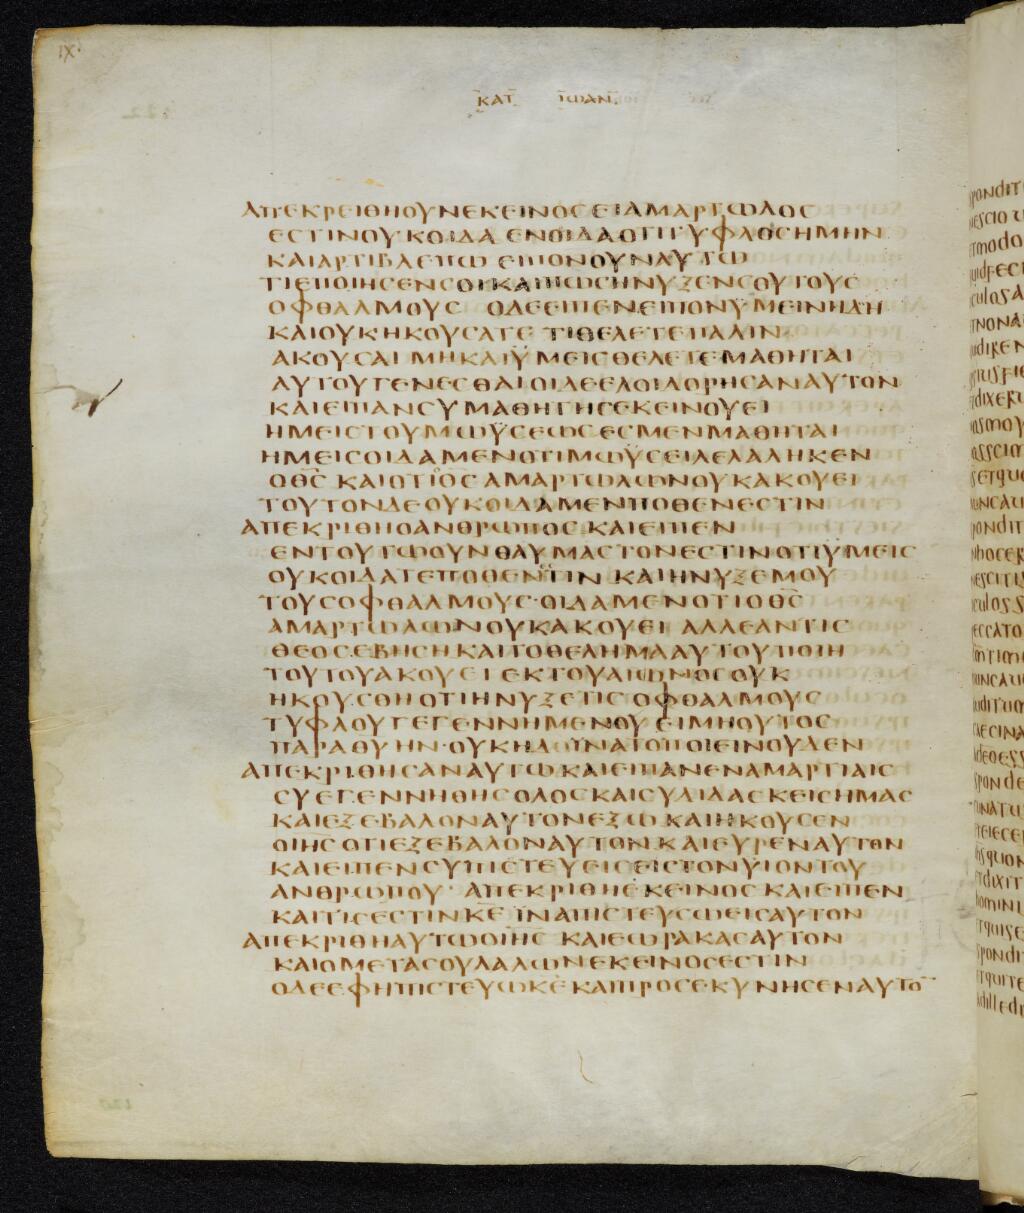 IX
ΚΑΤ ΙΩΑΝ
ΑΠΕΚΡΕΙΘΗΟΥΝΕΚΕΙΝΟΣΕΙΑΜΑΡΤΩΛΟΣ
ΕΣΤΙΝΟΥΚΟΙΔΑ ΕΝΟΙΔΑΟΤΙΤΥΦΛΟΣΗΜΗΝ
ΚΑΙΑΡΤΙΒΛΕΠΩ ΕΙΠΟΝΟΥΝΑΥΤΩ
ΤΙΕΠΟΙΗΣΕΝΣΟΙΚΑΙΠΩΣΗΝΥΞΕΝΣΟΥΤΟΥΣ
ΟΦΘΑΛΜΟΥΣ ΟΔΕΕΙΠΕΝΕΙΠΟΝΫΜΕΙΝΗΔΗ
ΚΑΙΟΥΚΗΚΟΥΣΑΤΕ ΤΙΘΕΛΕΤΕΠΑΛΙΝ
ΑΚΟΥΣΑΙ ΜΗΚΑΙΫΜΕΙΣΘΕΛΕΤΕΜΑΘΗΤΑΙ
ΑΥΤΟΥΓΕΝΕΣΘΑΙΟΙΔΕΕΛΟΙΔΟΡΗΣΑΝΑΥΤΟΝ
ΚΑΙΕΙΠΑΝΣΥΜΑΘΗΤΗΣΕΚΕΙΝΟΥΕΙ
ΗΜΕΙΣΤΟΥΜΩΫΣΕΩΣΕΣΜΕΝΜΑΘΗΤΑΙ
ΗΜΕΙΣΟΙΔΑΜΕΝΟΤΙΜΩΫΣΕΙΛΕΛΑΛΗΚΕΝ
ΟΘΣ ΚΑΙΟΤΙΟΘΣΑΜΑΡΤΩΛΩΝΟΥΚΑΚΟΥΕΙ
ΤΟΥΤΟΝΔΕΟΥΚΟΙΔΑΜΕΝΠΟΘΕΝΕΣΤΙΝ
ΑΠΕΚΡΙΘΗΟΑΝΘΡΩΠΟΣ ΚΑΙΕΙΠΕΝ
ΕΝΤΟΥΤΩΟΥΝΘΑΥΜΑΣΤΟΝΕΣΤΙΝΟΤΙΫΜΕΙΣ
ΟΥΚΟΙΔΑΤΕΠΟΘΕΝΕΣΤΙΝ ΚΑΙΗΝΥΞΕΜΟΥ
ΤΟΥΣΟΦΘΑΛΜΟΥΣ·ΟΙΔΑΜΕΝΟΤΙΟΘΣ
ΑΜΑΡΤΩΛΩΝΟΥΚΑΚΟΥΕΙ ΑΛΛΕΑΝΤΙΣ
ΘΕΟΣΕΒΗΣΗΚΑΙΤΟΘΕΛΗΜΑΑΥΤΟΥΠΟΙΗ
ΤΟΥΤΟΥΑΚΟΥΕΙ ΕΚΤΟΥΑΙΩΝΟΣΟΥΚ
ΗΚΟΥΣΘΗΟΤΙΗΝΥΞΕΤΙΣΟΦΘΑΛΜΟΥΣ
ΤΥΦΛΟΥΓΕΓΕΝΝΗΜΕΝΟΥ ΕΙΜΗΟΥΤΟΣ
ΠΑΡΑΘΥΗΝ·ΟΥΚΗΔΥΝΑΤΟΠΟΙΕΙΝΟΥΔΕΝ
ΑΠΕΚΡΙΘΗΣΑΝΑΥΤΩΚΑΙΕΙΠΑΝΕΝΑΜΑΡΤΙΑΙΣ
ΣΥΕΓΕΝΝΗΘΗΣΟΛΟΣΚΑΙΣΥΔΙΔΑΣΚΕΙΣΗΜΑΣ
ΚΑΙΕΞΕΒΑΛΟΝΑΥΤΟΝΕΞΩ ΚΑΙΗΚΟΥΣΕΝ
ΟΙΗΣΟΤΙΕΞΕΒΑΛΟΝΑΥΤΟΝ ΚΑΙΕΥΡΕΝΑΥΤΟΝ
ΚΑΙΕΙΠΕΝΣΥΠΙΣΤΕΥΕΙΣΕΙΣΤΟΝΥΙΟΝΤΟΥ
ΑΝΘΡΩΠΟΥ· ΑΠΕΚΡΙΘΗΕΚΕΙΝΟΣΚΑΙΕΙΠΕΝ
ΚΑΙΤΙΣΕΣΤΙΝΚΕ ΪΝΑΠΙΣΤΕΥΣΩΕΙΣΑΥΤΟΝ
ΑΠΕΚΡΙΘΗΑΥΤΩΟΙΗΣ ΚΑΙΕΩΡΑΚΑΣΑΥΤΟΝ
ΚΑΙΟΜΕΤΑΣΟΥΛΑΛΩΝΕΚΕΙΝΟΣΕΣΤΙΝ
ΟΔΕΕΦΗΠΙΣΤΕΥΩΚΕ ΚΑΙΠΡΟΣΕΚΥΝΗΣΕΝΑΥΤΩ